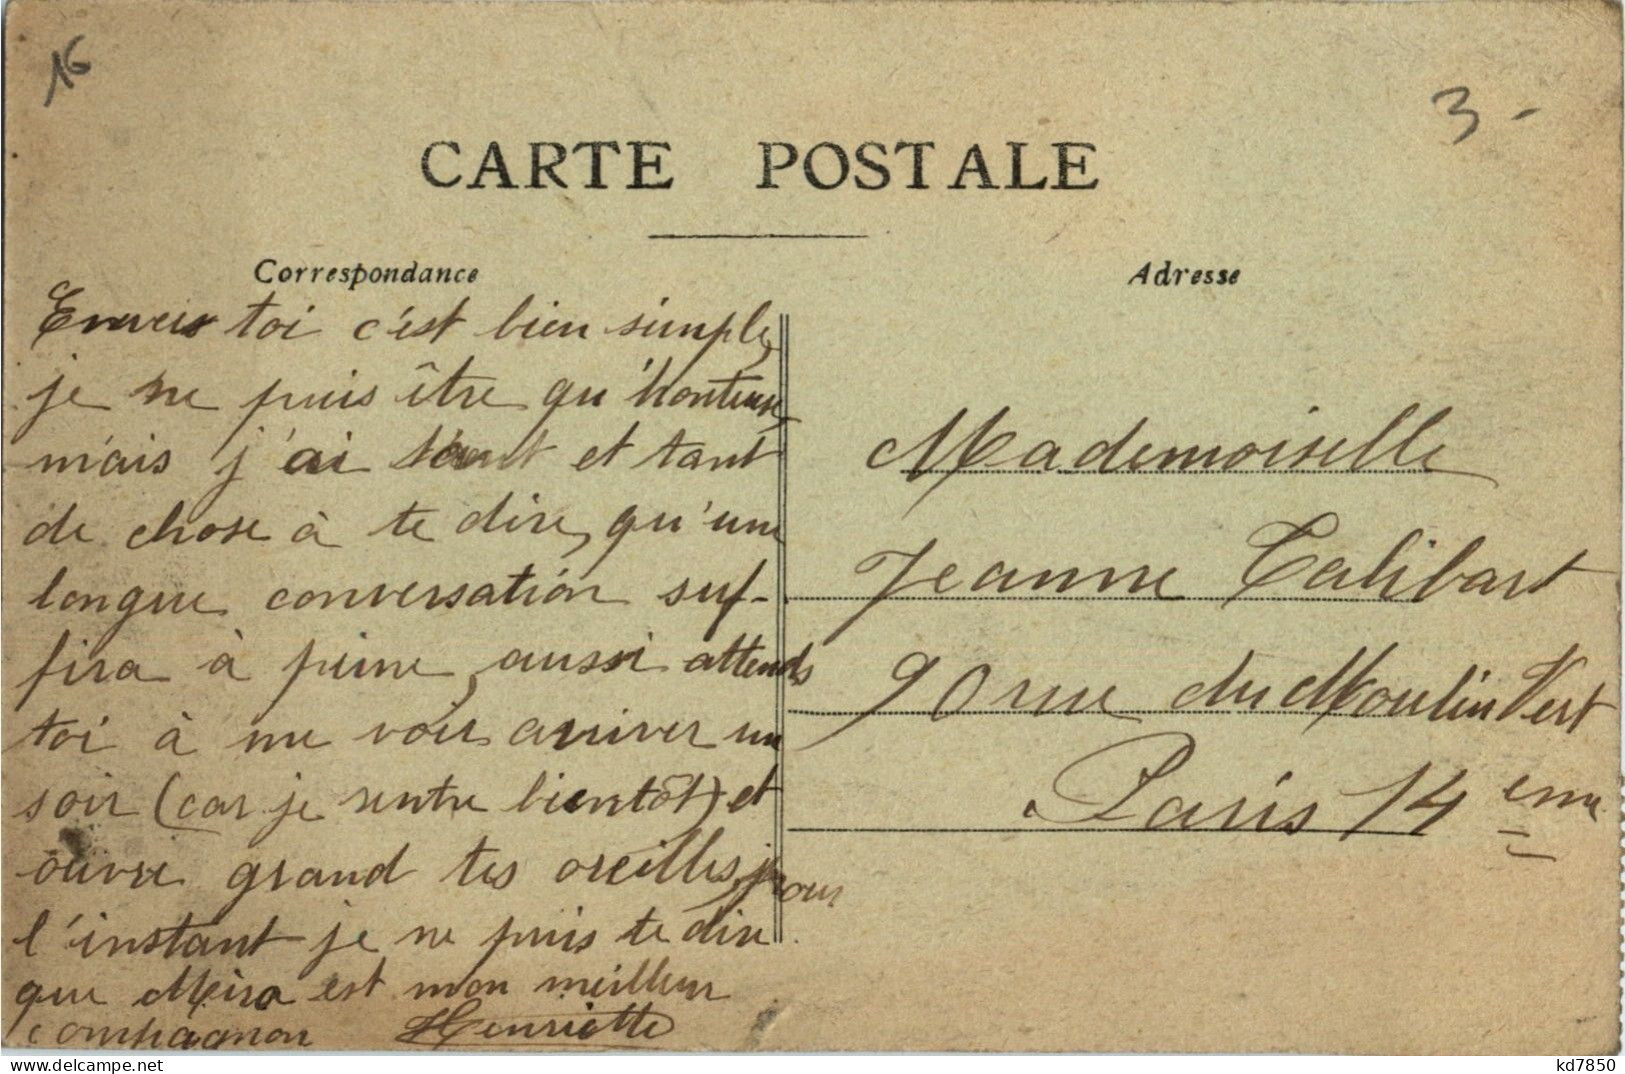 16
3 -
CARTE POSTALE
Correspondance
Envers toi c'est bien simple,
je ne puis être qu'honteuse,
mais j'ai tant et tant
de chose à te dire, qu'une
longue conversation suf-
fira à peine, aussi attends
toi à me voir arriver un
soir (car je rentre bientôt) et
ouvre grand tes oreilles, pour
l'instant je ne puis te dire
que Méra est mon meilleur
compagnon Henriette
Adresse
Mademoiselle
Jeanne Talibart
90 rue du Moulin Vert
Paris 14 eme
delcampe.net
kd7850